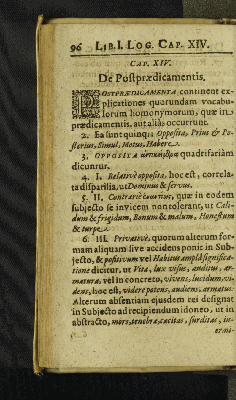 96 LIB. I. LOG. CAP. XIV.
CAP. XIV.
De Postprædicamentis.
POSTPRÆDICAMENTA continent ex-
plicationes quorundam vocabu-
lorum homonymorum, quæ in
prædicamentis aut alib. occurrunt.
2. Ea sunt quinq;: Opposita, Prius & Po-
sterius, Simul, Motus, Habere.
3. OPPOSITA quadrifariàm
dicuntur.
4. I. Relativè opposita, hoc est, correla-
ta disparilia, ut Dominus & servus.
5. II. Contrariè contraria, quæ in eodem
subjecto se invicem non tolerant, ut Cali-
dum & frigidum, Bonum & malum, Honestum
& turpe.
6. III. Privativè, quorum alterum for-
mam aliquam sive accidens ponit in Sub-
jecto, & positivum vel Habitus amplâ significa-
tione dicitur, ut Vita, lux visus, auditus, ar-
matura, vel in concreto, vivens, lucidum, vi-
dens, hoc est, videre potens, audiens, armatus:
Alterum absentiam ejusdem rei designat
in Subjecto ad recipiendum idoneo, ut in
abstracto, mors, tenebræ, cæcitas, surditas, in-
ermi-